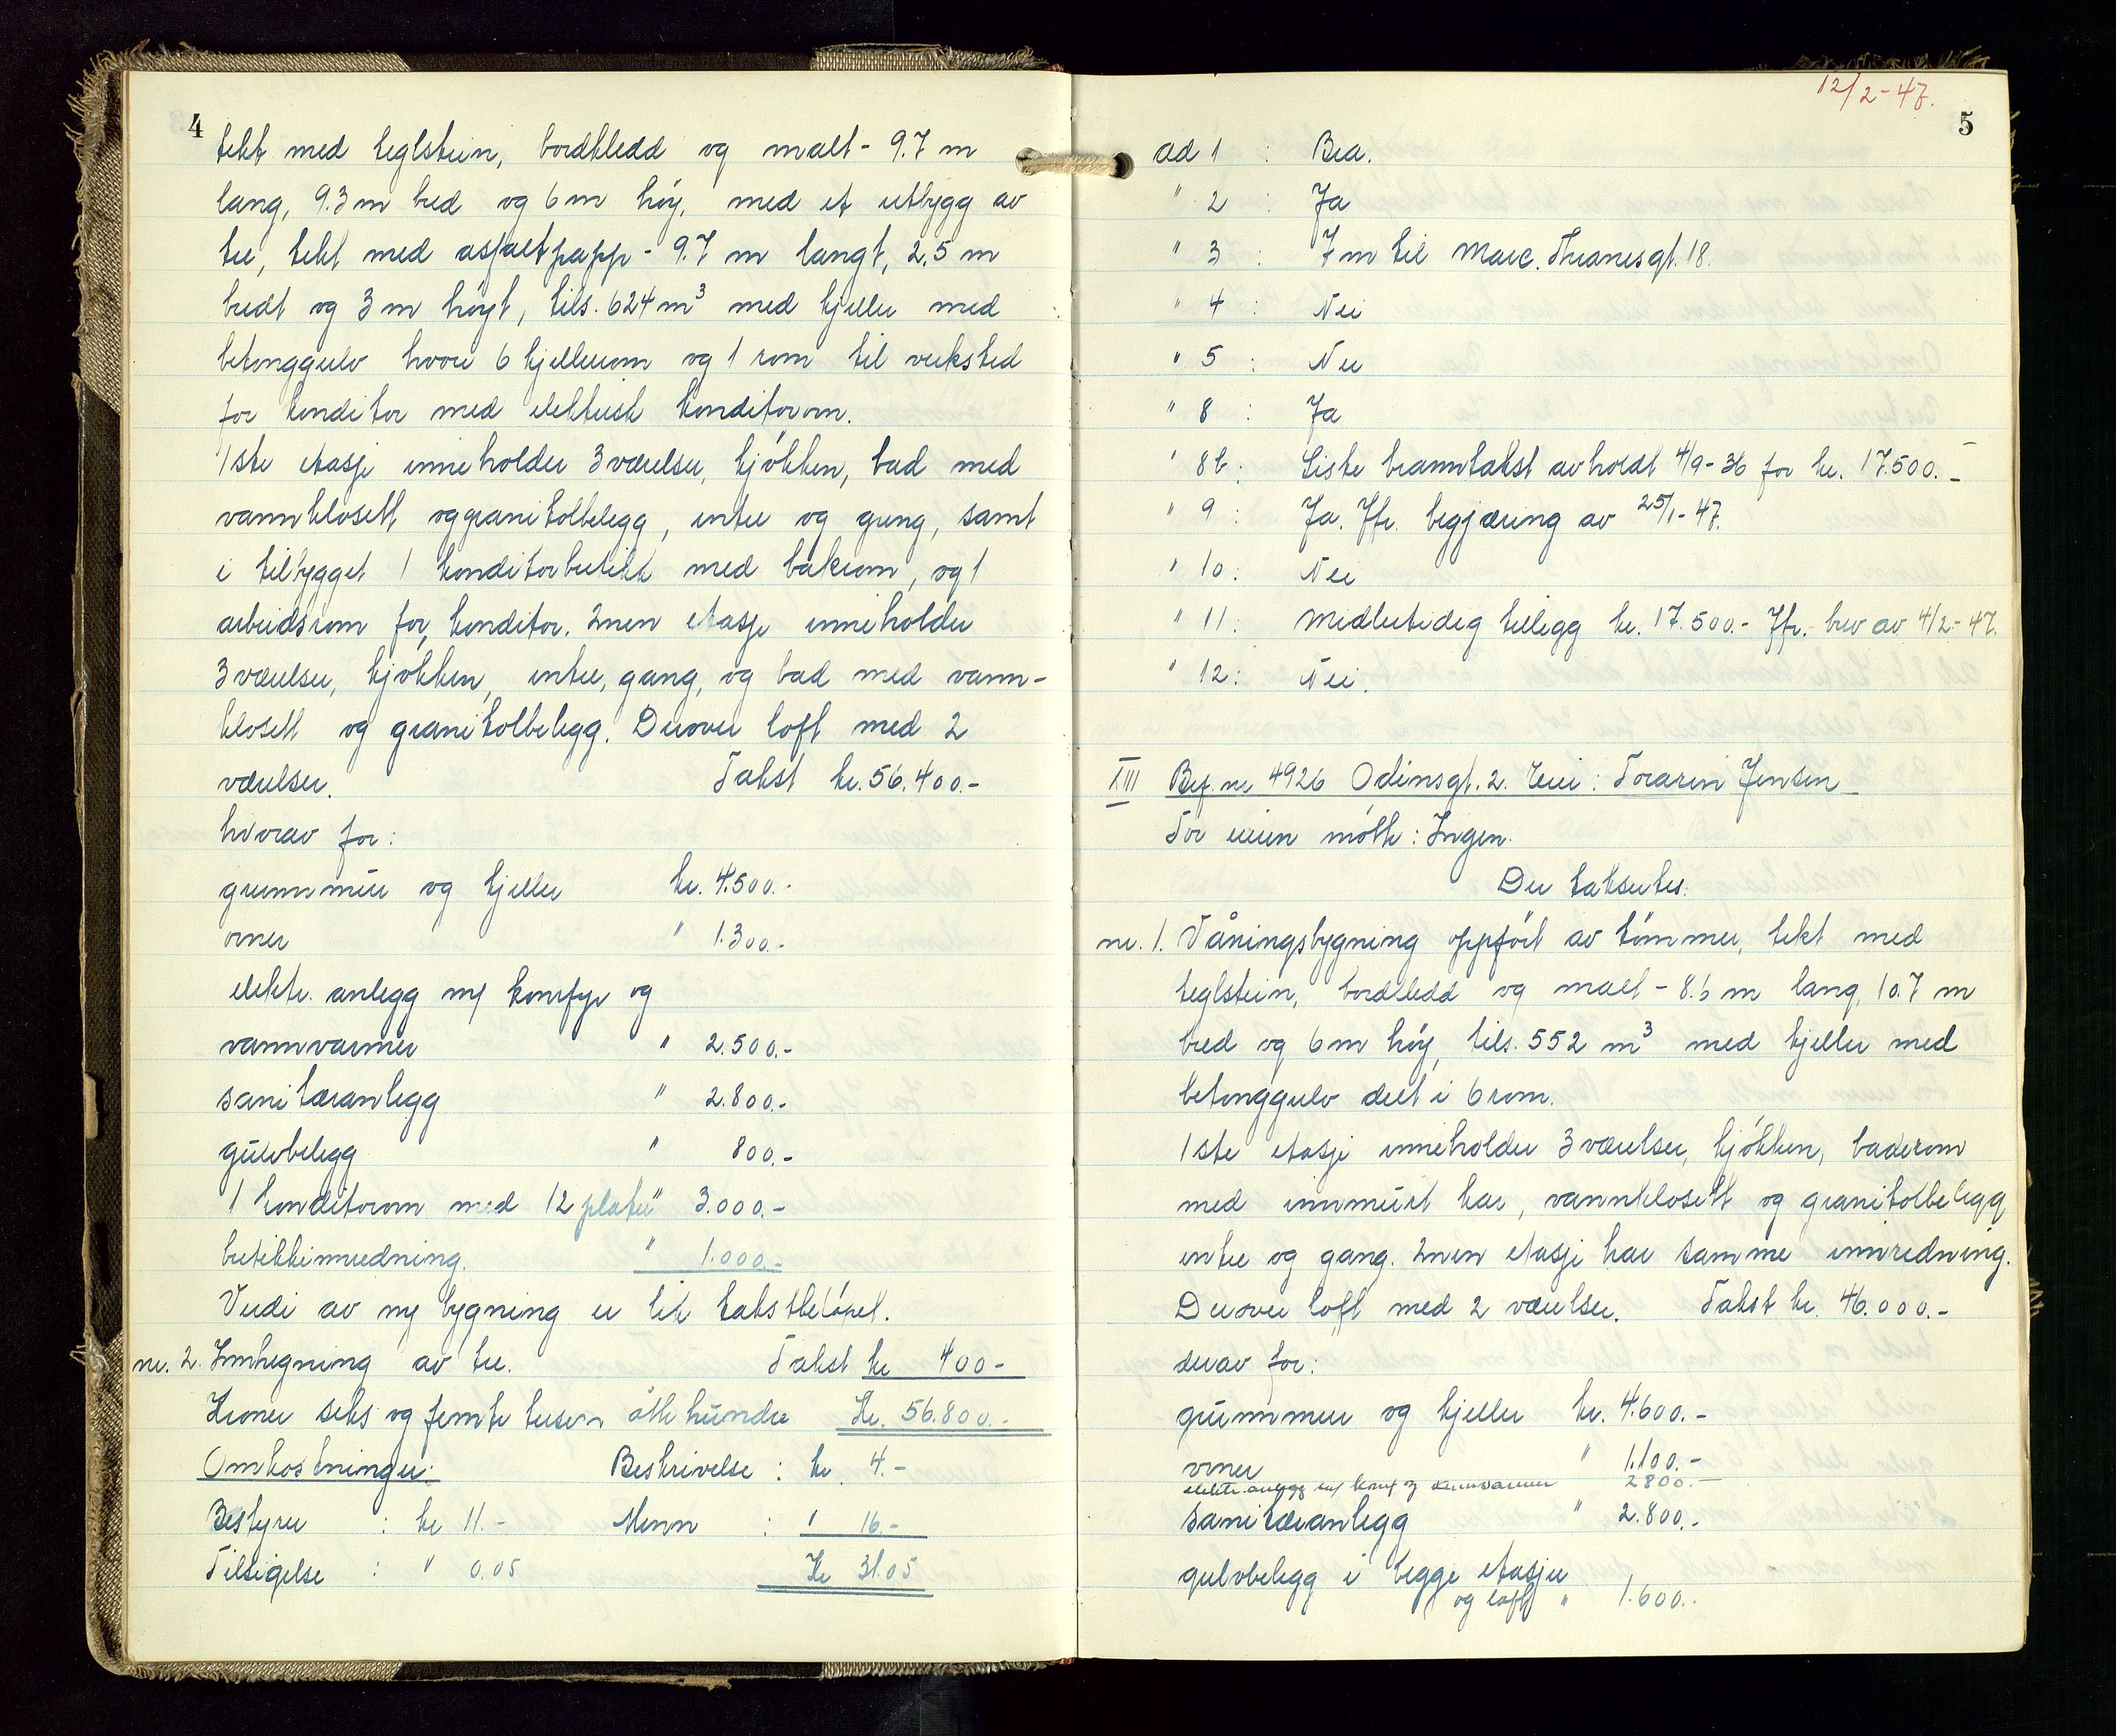 4
tekt med teglstein, bordkledd og malt - 9.7 m
lang, 9.3 m bred og 6 m høy, med et utbygg av
tre, tekt med asfaltpapp - 9.7 m langt, 2.5 m
bredt og 3 m høyt, tils. 624 m³ med kjeller med
betonggulv hvori 6 kjellerrom og 1 rom til verksted
for konditor med elektrisk konditorovn.
1ste etasje inneholder 3 værelser, kjøkken, bad med
vannklosett og granitolbelegg, entre og gang, samt
i tilbygget 1 konditorbutikk med bakrom, og 1
arbeidsrom for konditor. 2nen etasje inneholder
3 værelser, kjøkken, entre, gang, og bad med vann-
klosett og granitolbelegg. Derover loft med 2
værelser. Takst kr. 56.400.-
hvorav for:
grunnmur og kjeller kr. 4.500.-
ovner " 1.300.-
elektr. anlegg m/ komfyr og
vannvarmer " 2.500.-
sanitæranlegg " 2.800.-
gulvbelegg " 800.-
1 konditorovn med 12 plater " 3.000.-
butikkinnredning. " 1.000.-
Verdi av ny bygning er lik takstbeløpet.
nr. 2. Innhegning av tre. Takst kr 400-
Kroner seks og femti tusen åtte hundre Kr. 56.800.-
Omkostninger: Beskrivelse : kr 4.-
Bestyrer : kr 11.- Menn : " 16.-
Tilsigelse : " 0.05 Kr 31.05
12/2-47.
5
ad 1 : Bra.
" 2 : Ja
" 3 : 7 m til Marc. Thranesgt. 18.
" 4 : Nei
" 5 : Nei
" 8 : Ja
" 8b: Siste branntakst avholdt 4/9-36 for kr. 17.500.-
" 9 : Ja. Jfr. begjæring av 25/1-47.
" 10: Nei
" 11: Midlertidig tillegg kr. 17.500.- Jfr. brev av 4/2-47.
" 12: Nei.
XIII Bef. nr 4926 Odinsgt. 2. Eier: Toraren Jensen
For eieren møtte: Ingen.
Der takseres:
nr. 1. Våningsbygning oppført av tømmer, tekt med
teglstein, bordkledd og malt - 8.6 m lang, 10.7 m
bred og 6 m høy, tils. 552 m³ med kjeller med
betonggulv delt i 6 rom.
1ste etasje inneholder 3 værelser, kjøkken, baderom
med innmurt kar, vannklosett og granitolbelegg
entre og gang. 2nen etasje har samme innredning.
Derover loft med 2 værelser. Takst kr. 46.000.-
derav for:
grunnmur og kjeller kr. 4.600.-
ovner " 1.100.-
elektr. anlegg m/ komf og vannvarmer 2800.-
sanitæranlegg " 2.800.-
gulvbelegg i begge etasjer
og loft " 1.600.-